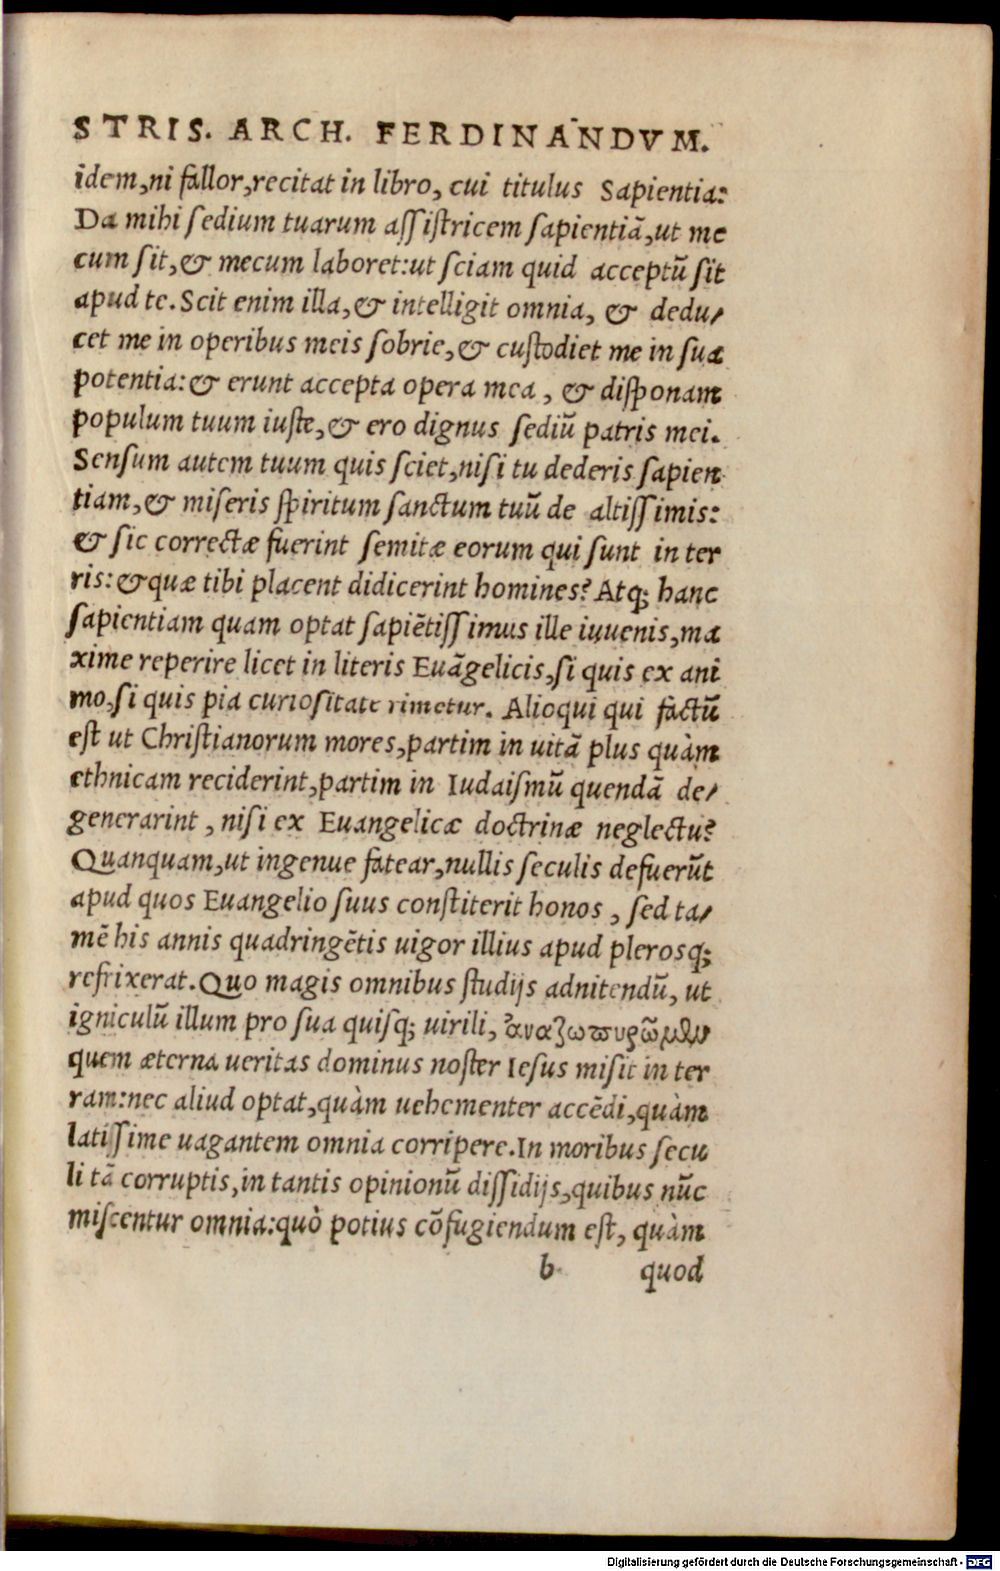 STRIS. ARCH. FERDINANDVM.
idem,ni fallor,recitat in libro, cui titulus Sapientia:
Da mihi sedium tuarum assistricem sapientiã,ut me
cum sit,& mecum laboret:ut sciam quid acceptũ sit
apud te. Scit enim illa,& intelligit omnia, & dedu/
cet me in operibus meis sobrie,& custodiet me in sua
potentia:& erunt accepta opera mea, & disponam
populum tuum iuste,& ero dignus sediũ patris mei.
Sensum autem tuum quis sciet,nisi tu dederis sapien
tiam,& miseris spiritum sanctum tuũ de altissimis:
& sic correctæ fuerint semitæ eorum qui sunt in ter
ris:& quæ tibi placent didicerint homines? Atq; hanc
sapientiam quam optat sapiẽtissimus ille iuuenis,ma
xime reperire licet in literis Euãgelicis,si quis ex ani
mo,si quis pia curiositate rimetur. Alioqui qui factũ
est ut Christianorum mores,partim in uitã plus quàm
ethnicam reciderint,partim in Iudaismũ quendã de/
generarint, nisi ex Euangelicæ doctrinæ neglectu?
Quanquam,ut ingenue fatear,nullis seculis defuerũt
apud quos Euangelio suus constiterit honos, sed ta/
mẽ his annis quadringẽtis uigor illius apud plerosq;
refrixerat. Quo magis omnibus studijs adnitendũ, ut
igniculũ illum pro sua quisq; uirili, ἀναζωπυρῶμεν
quem æterna ueritas dominus noster Iesus misit in ter
ram:nec aliud optat,quàm uehementer accẽdi,quàm
latissime uagantem omnia corripere. In moribus secu
li tã corruptis,in tantis opinionũ dissidijs,quibus nũc
miscentur omnia:quò potius cõfugiendum est, quàm
b quod
Digitalisierung gefördert durch die Deutsche Forschungsgemeinschaft - DFG